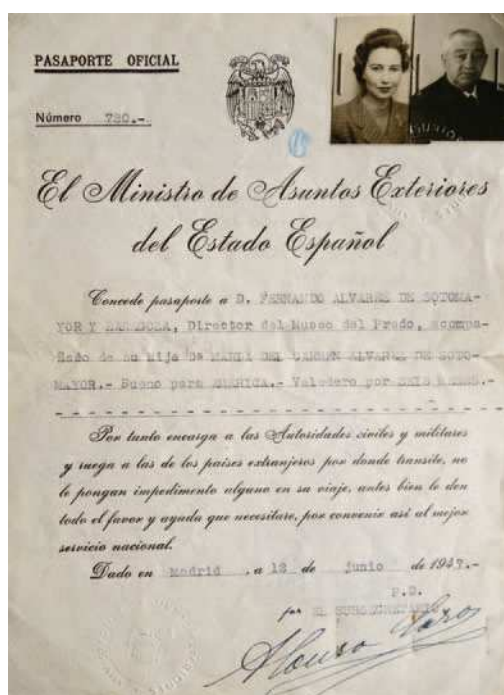 PASAPORTE OFICIAL
Número 780.-
El Ministro de Asuntos Exteriores
del Estado Español
Concede pasaporte a D. FERNANDO ALVAREZ DE SOTOMA-
YOR Y ZARAGOZA, Director del Museo del Prado, acompa-
ñado de su hija Dª MARIA DEL CARMEN ALVAREZ DE SOTO-
MAYOR.- Bueno para AMERICA.- Valedero por SEIS MESES.-
Por tanto encarga a las Autoridades civiles y militares
y ruega a las de los países extranjeros por donde transite, no
le pongan impedimento alguno en su viaje, antes bien le den
todo el favor y ayuda que necesitare, por convenir así al mejor
servicio nacional.
Dado en Madrid, a 12 de junio de 1947.-
P.D.
por EL SUBSECRETARIO